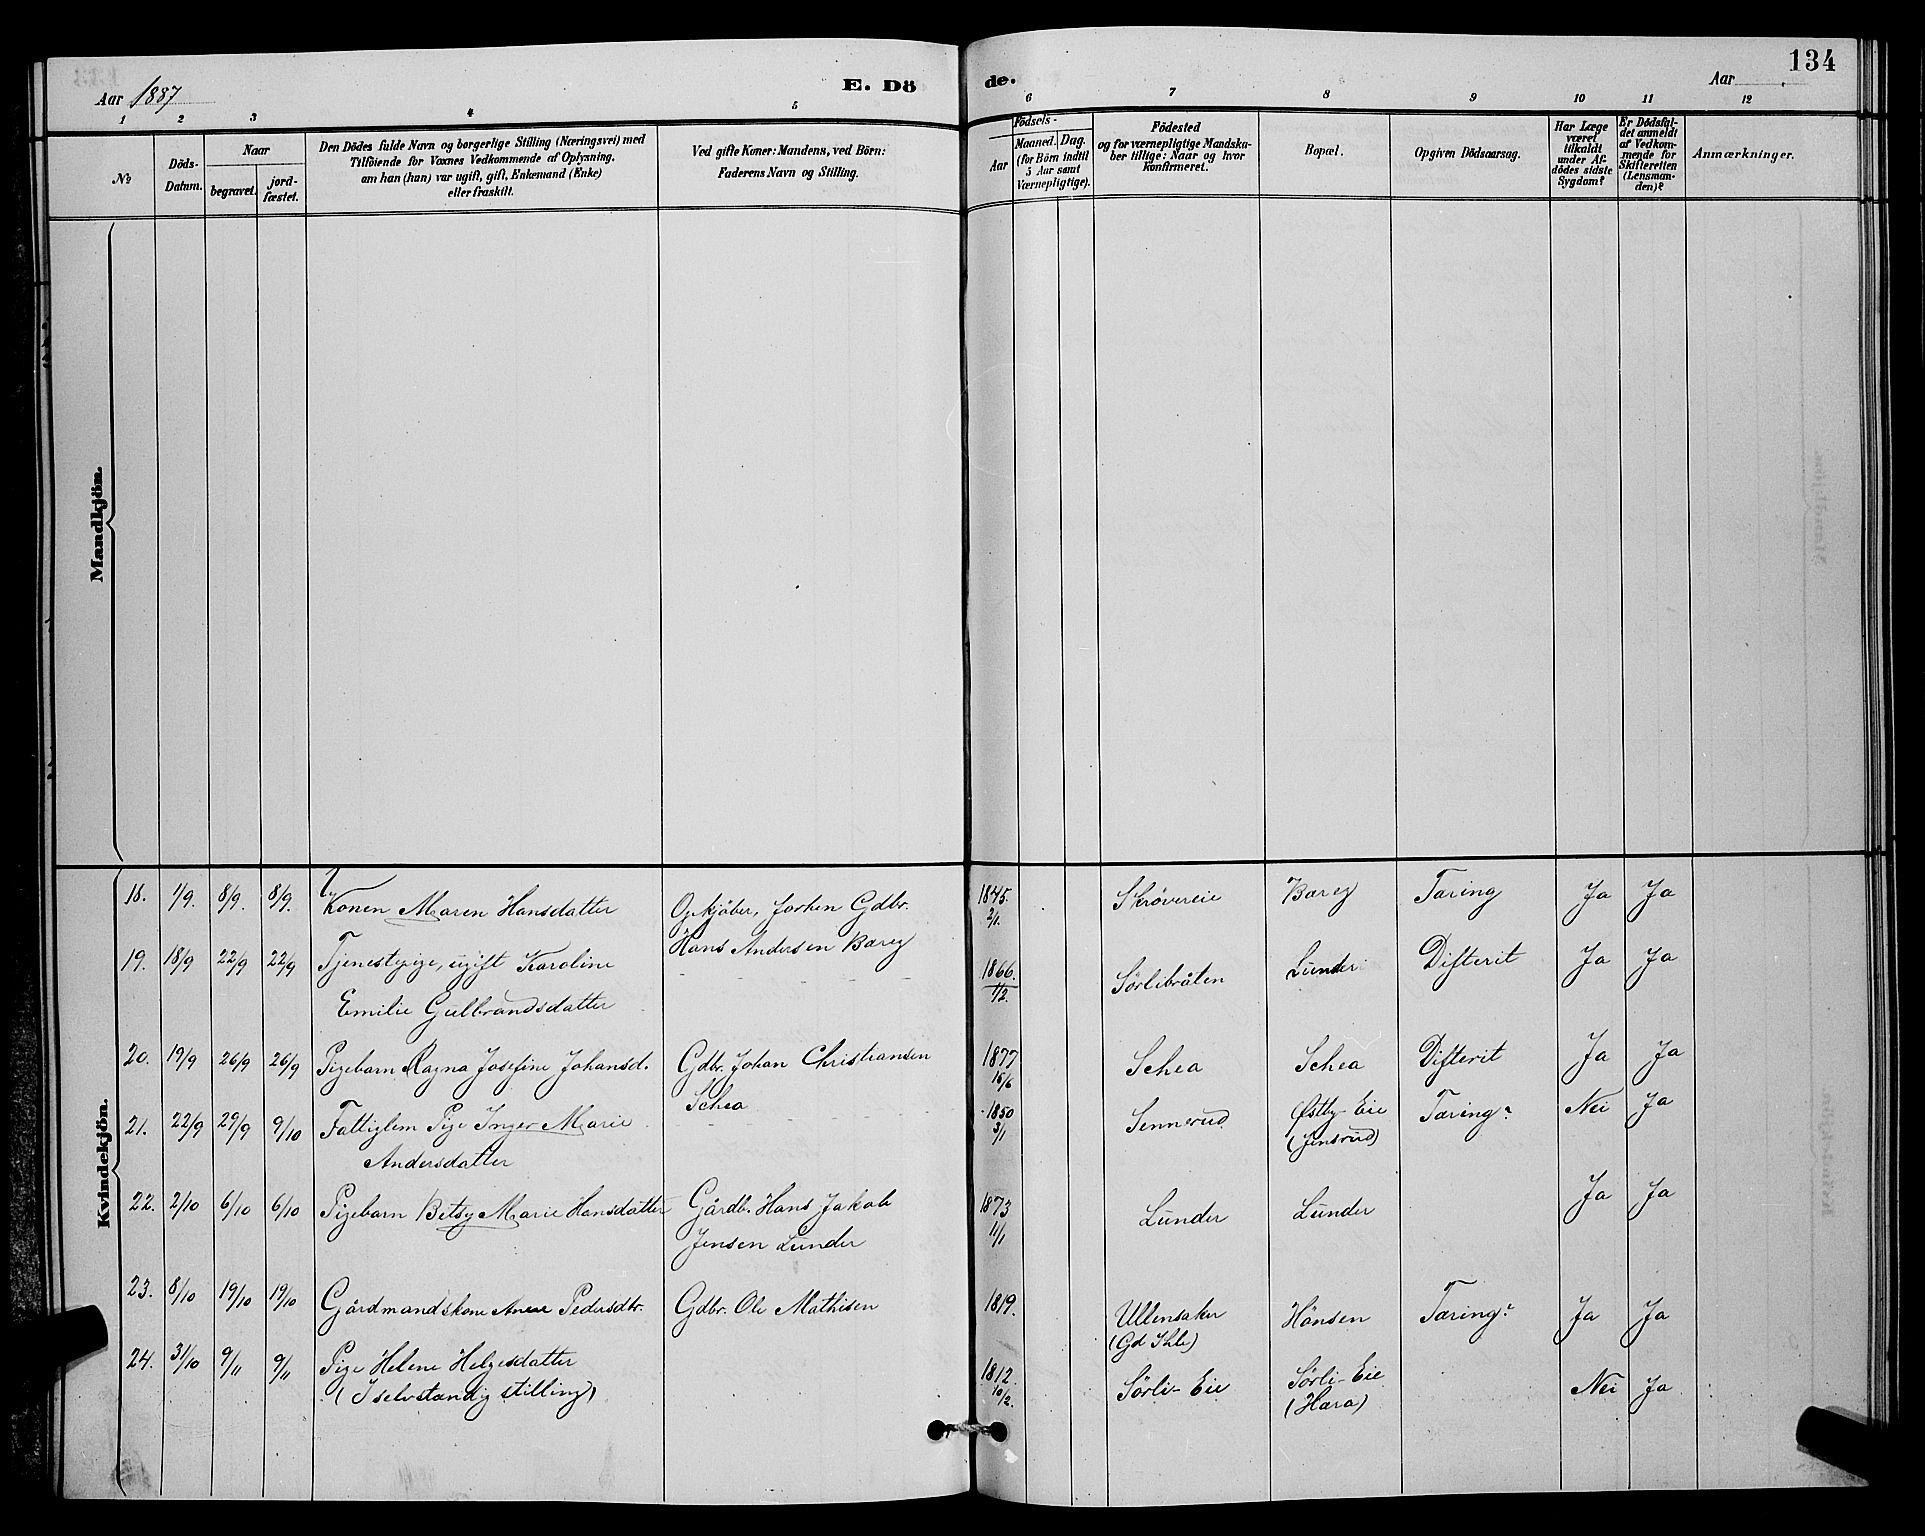 134
Aar 1887
E. Dö
de.
Aar
1 2 3 4 5 6 7 8 9 10 11 12
No
Döds-
Datum.
Naar
begravet.
jord-
fæstet.
Den Dödes fulde Navn og borgerlige Stilling (Næringsvei) med
Tilföiende for Voxnes Vedkommende af Oplysning.
om han (hun) var ugift, gift, Enkemand (Enke)
eller fraskilt.
Ved gifte Koner: Mandens, ved Börn:
Faderens Navn og Stilling.
Födsels-
Aar
Maaned. Dag.
(for Börn indtil
5 Aar samt
Værnepligtige).
Födested
og for værnepligtige Mandska-
ber tillige: Naar og hvor
konfirmeret.
Bopæl.
Opgiven Dödsaarsag.
Har Læge
været
tilkaldt
under Af-
dödes sidste
Sygdom?
Er Dödsfal-
det anmeldt
af Vedkom-
mende for
Skifteretten
(Lensman-
den)?
Anmærkninger.
Mandkjön.
Kvindekjön.
18. 1/9. 8/9. 8/9. Konen Maren Hansdatter Opkjöber, forhen Gdbr. 1845. Skrövereie Tæring Ja Ja
Hans Andersen 2/1.
19. 18/9 22/9 22/9 Tjenestepige, ugift Karoline 1866. Sörlibråten Lunder Difterit Ja Ja
Emilie Gulbrandsdatter 1/2.
20. 19/9 26/9 26/9 Pigebarn Ragna Josefine Johansd. Gdbr. Johan Christiansen 1877 Schea Schea Difterit Ja Ja
Schea 15/6
21. 22/9 29/9 9/10 Fattiglem Pige Inger Marie 1850 Sennerud Østby-Eie Tæring Nei Ja
Andersdatter 3/1 (Jensrud)
22. 2/10 6/10 6/10 Pigebarn Betsy Marie Hansdatter Gårdb. Hans Jakob 1873 Lunder Lunder Ja Ja
Jensen Lunder 11/1
23. 8/10 19/10 19/10 Gårdmandskone Anne Pedersdtr. Gdbr. Ole Mathisen 1819. Ullensaker Hönsen Tæring Ja Ja
(Gd Ihle)
24. 31/10 9/11 9/11 Pige Helene Helgesdatter 1812 Sörli-Eie Sörli-Eie Nei Ja
(I selvstændig stilling) 10/2. (Hara)